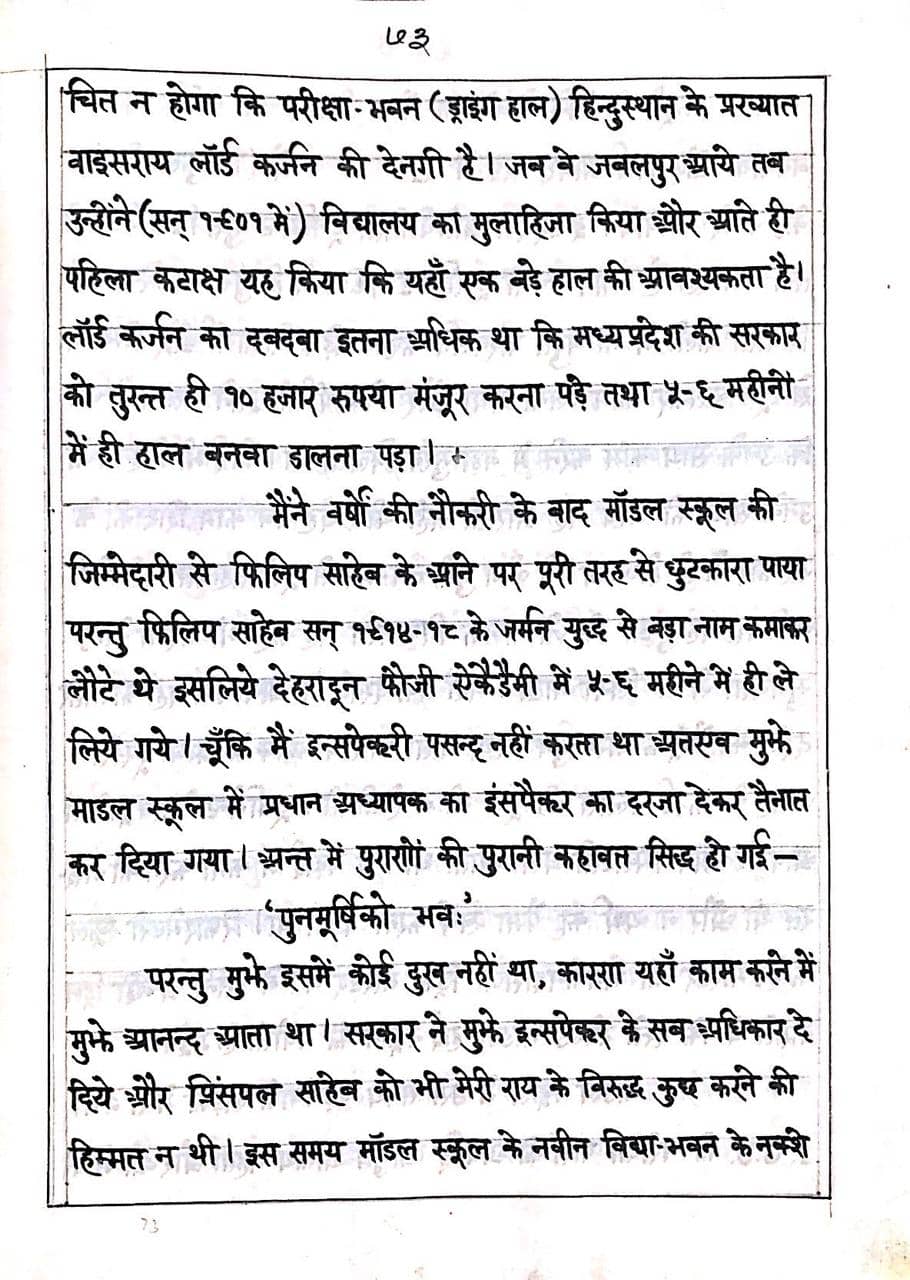 ७३
चित न होगा कि परीक्षा-भवन (ड्राइंग हाल) हिन्दुस्थान के प्रख्यात
वाइसराय लॉर्ड कर्जन की देनगी है। जब वे जबलपुर आये तब
उन्होंने (सन् १९०१ में) विद्यालय का मुलाहिजा किया और आते ही
पहिला कटाक्ष यह किया कि यहाँ एक बड़े हाल की आवश्यकता है।
लॉर्ड कर्जन का दबदबा इतना अधिक था कि मध्यप्रदेश की सरकार
को तुरन्त ही १० हजार रुपया मंजूर करना पड़े तथा ५-६ महीनों
में ही हाल बनवा डालना पड़ा। +
मैंने वर्षों की नौकरी के बाद मॉडल स्कूल की
जिम्मेदारी से फिलिप साहेब के आने पर पूरी तरह से छुटकारा पाया
परन्तु फिलिप साहेब सन् १९१४-१८ के जर्मन युद्ध से बड़ा नाम कमाकर
लौटे थे इसलिये देहरादून फौजी ऐकेडैमी में ५-६ महीने में ही ले
लिये गये। चूँकि मैं इन्सपेक्टरी पसन्द नहीं करता था अतएव मुझे
माडल स्कूल में प्रधान अध्यापक का इंसपैक्टर का दरजा देकर तैनात
कर दिया गया। अन्त में पुराणों की पुरानी कहावत सिद्ध हो गई —
'पुनमूर्षिको भवः'
परन्तु मुझे इसमें कोई दुख नहीं था, कारण यहाँ काम करने में
मुझे आनन्द आता था। सरकार ने मुझे इन्सपेक्टर के सब अधिकार दे
दिये और प्रिंसपल साहेब को भी मेरी राय के विरुद्ध कुछ करने की
हिम्मत न थी। इस समय मॉडल स्कूल के नवीन विद्या-भवन के नक्शे
73